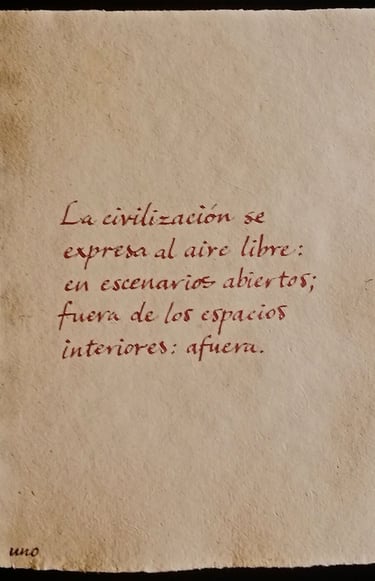 La civilización se
expresa al aire libre:
en escenarios abiertos;
fuera de los espacios
interiores: afuera.
uno